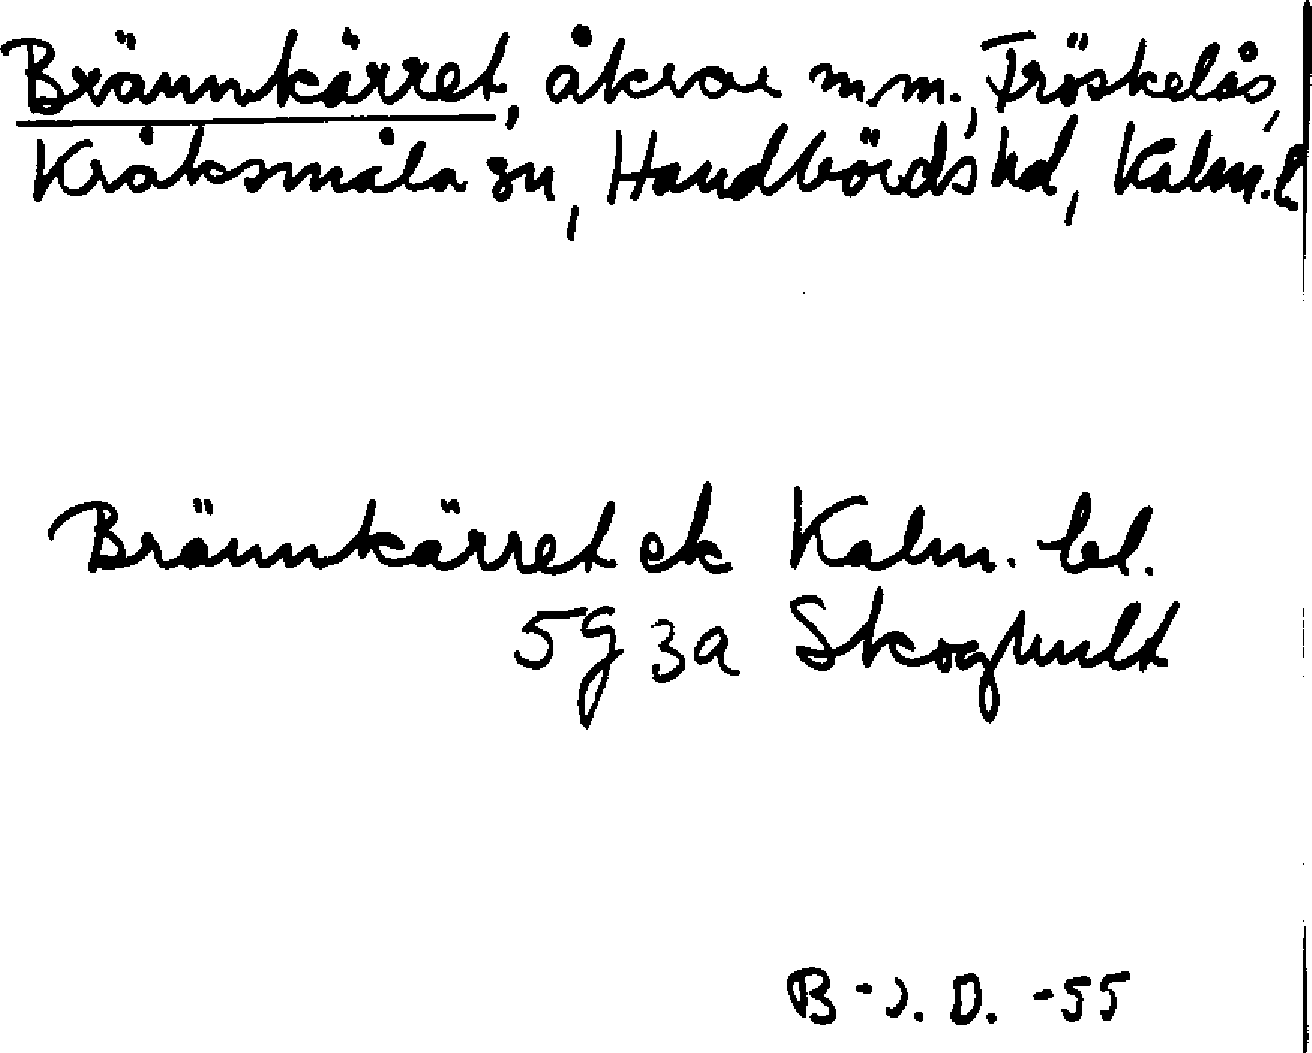 Brännkärret, åkrar m.m., Fröskelås,
Kråksmåla sn, Handbörds hd, Kalm. l
Brännkärret ek Kalm. bl.
5G 3a Skoghult
B-J. D. -55